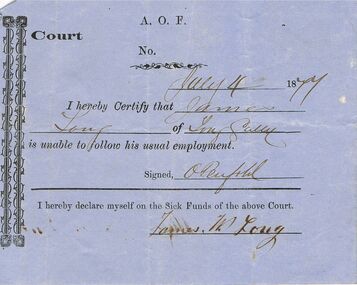 A. O. F.
Court
No.
July 4 1877
I hereby Certify that James
Long of Long Gully
is unable to follow his usual employment.
Signed, O Penfold
I hereby declare myself on the Sick Funds of the above Court.
James Mc Long